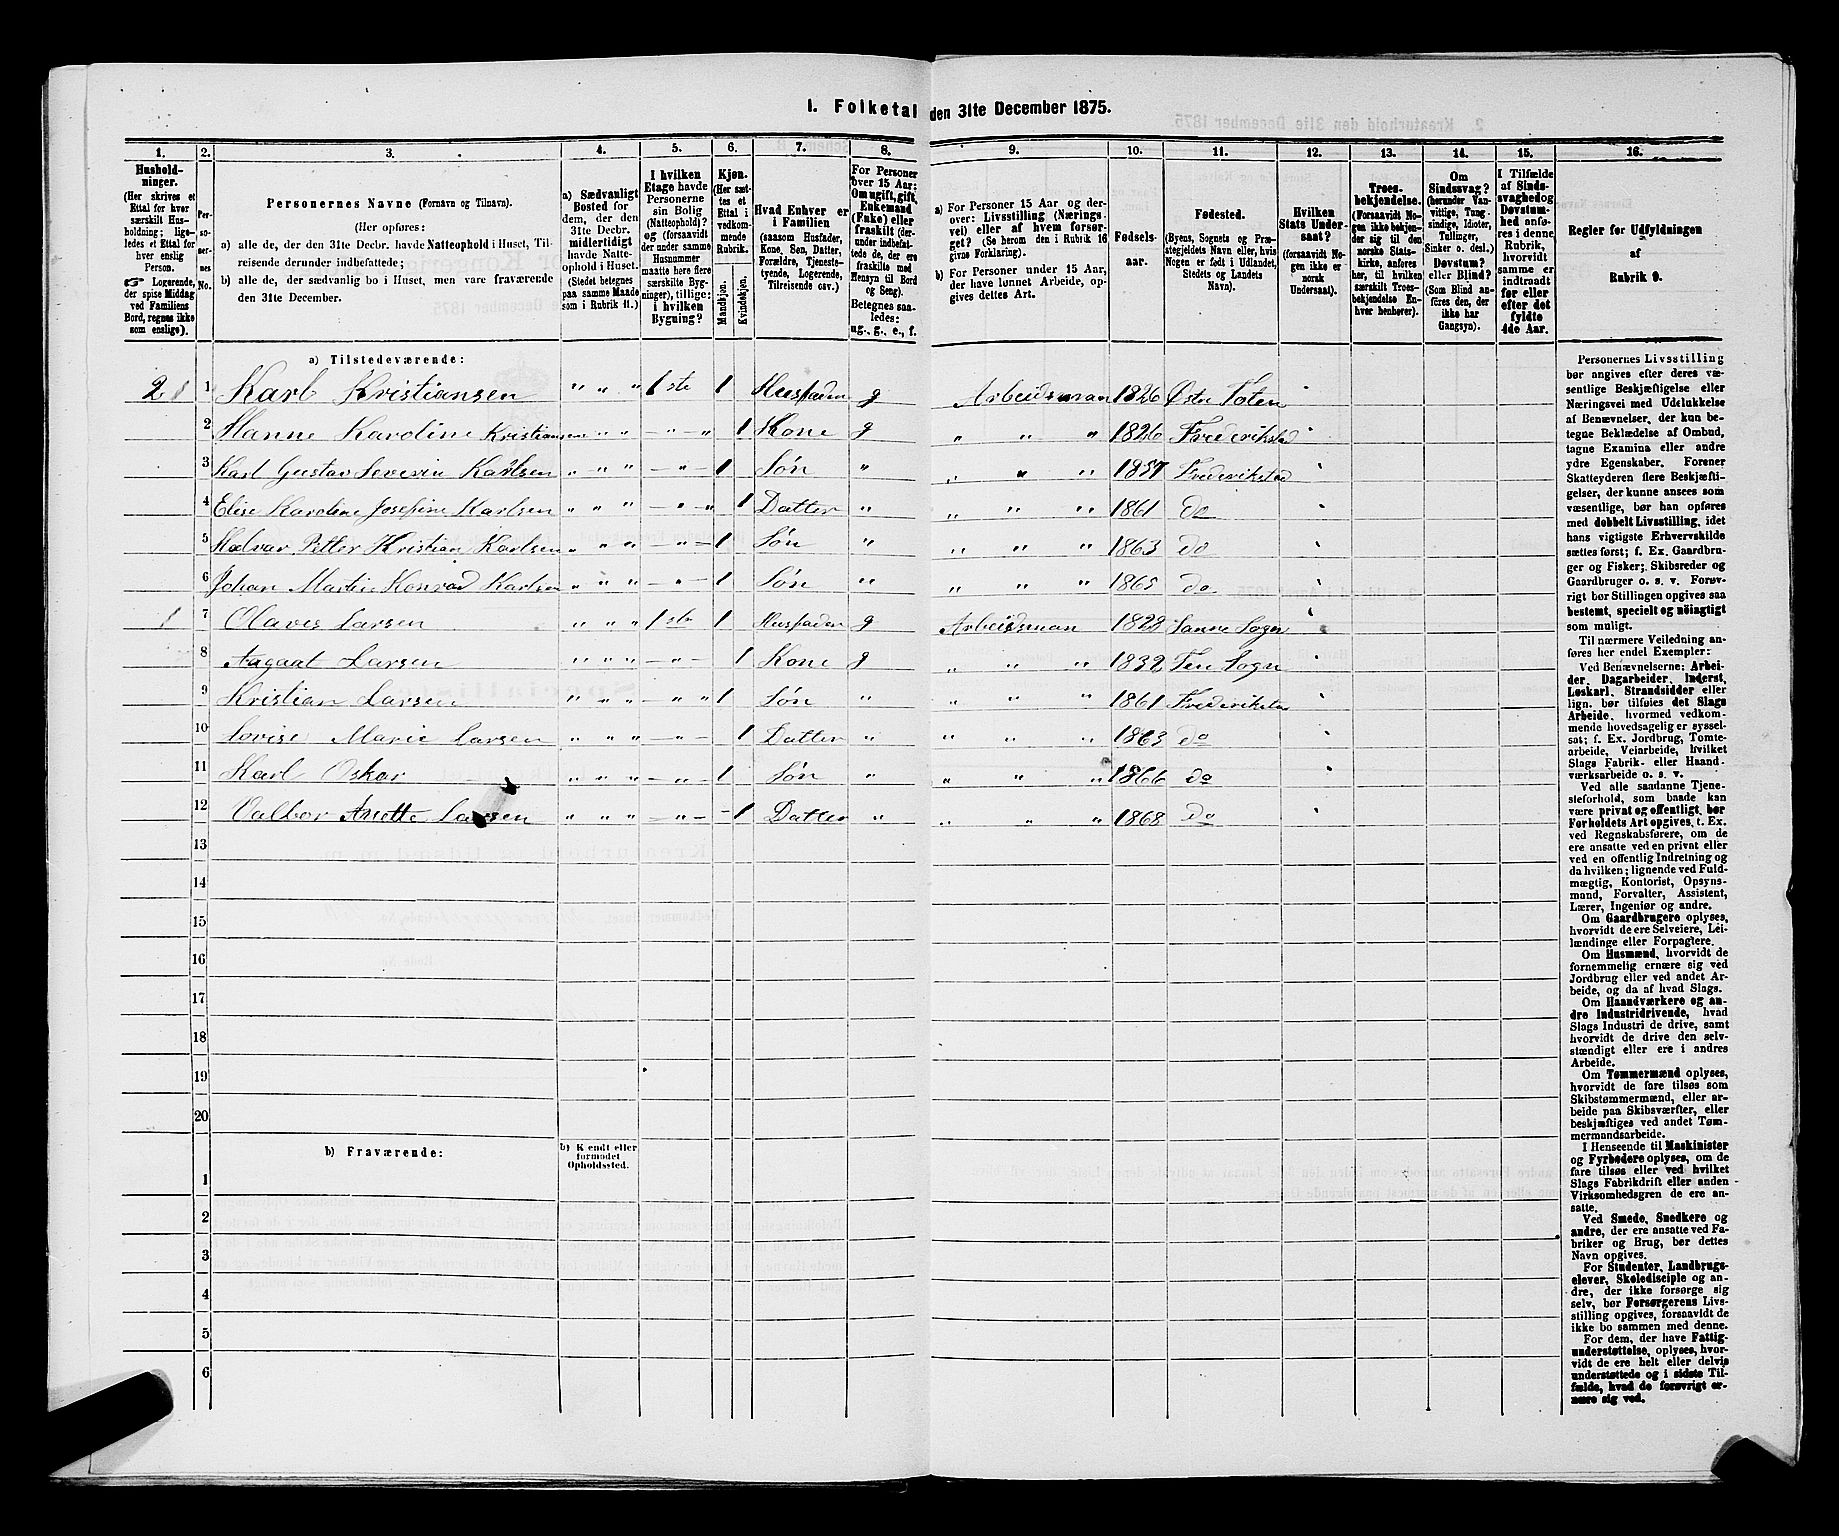 1. Folketal den 31te December 1875.
1. 2. 3. 4. 5. 6. 7. 8. 9. 10. 11. 12. 13. 14. 15. 16.
Hushold-
ninger.
(Her skrives et
Ettal for hver
særskilt Hus-
holdning; lige-
ledes et Ettal for
hver enslig
Person.
Logerende,
der spise Middag
ved Familiens
Bord, regnes ikke
som enslige).
Per-
so-
ner-
nes
No.
Personernes Navne (Fornavn og Tilnavn).
(Her opføres:
a) alle de, der den 31te Decbr. havde Natteophold i Huset, Til-
reisende derunder indbefattede;
b) alle de, der sædvanlig bo i Huset, men vare fraværende
den 31te December.
a) Sædvanligt
Bosted for
dem, der den
31te Decbr.
midlertidigt
havde Natte-
ophold i Huset.
(Stedet betegnes
paa samme Maade
som i Rubrik 11.)
I hvilken
Etage havde
Personerne
sin Bolig
(Natteophold)?
og (forsaavidt
der under samme
Husnummer
maatte høre flere
særskilte Byg-
ninger), tillige:
i hvilken
Bygning?
Kjøn.
(Her sæt-
tes et
Ettal i
vedkom-
mende
Rubrik.
Mandkjøn.
Kvindekjøn.
Hvad Enhver er
i Familien
(saasom Husfader,
Kone, Søn, Datter,
Forældre, Tjeneste-
tyende, Logerende,
Tilreisende osv.)
For Personer
over 15 Aar:
Om ugift, gift,
Enkemand
(Enke) eller
fraskilt (der-
under indbefat-
tede de, der ere
fraskilte med
Hensyn til Bord
og Seng).
Betegnes saa-
ledes:
ug., g., e., f.
a) For Personer 15 Aar og der-
over: Livsstilling (Nærings-
vei) eller af hvem forsør-
get? (Se herom den i Rubrik 16
givne Forklaring).
b) For Personer under 15 Aar,
der have lønnet Arbeide, op-
gives dettes Art.
Fødsels-
aar.
Fødested.
(Byens, Sognets og Præ-
stegjeldets Navn eller, hvis
Nogen er født i Udlandet,
Stedets og Landets
Navn).
Hvilken
Stats Under-
saat?
(forsaavidt No-
gen ikke er
norsk
Undersaat).
Troes-
bekjendelse.
(Forsaavidt No-
gen ikke bekjen-
der sig til den
norske Stats-
kirke, anføres
her, til hvilken
særskilt Troes-
bekjendelse En-
hver henhører).
Om
Sindssvag?
(herunder Van-
vittige, Tung-
sindige, Idioter,
Tullinger,
Sinker o. desl.)
Døvstum?
eller Blind?
(Som Blind an-
føres den, der
ikke har
Gangsyn).
I Tilfælde
af Sinds-
svaghed og
Døvstum-
hed anfø-
res i denne
Rubrik,
hvorvidt
samme er
indtraadt
før eller
efter det
fyldte
4de Aar.
Regler for Udfyldningen
af
Rubrik 9.
a) Tilstedeværende:
2 1 Karl Kristiansen " " " 1 ste 1 Husfader g Arbeidsmand 1826 Østre Toten
2 Hanne Karoline Kristiansen " " " - " - " 1 Kone g " " " 1826 Frederikstad
3 Karl Gustav Severin Karlsen " " " - " - 1 Søn " " " " 1857 Frederikstad
4 Elise Karoline Josefine Karlsen " " " - " - " 1 Datter " " " " 1861 do
5 Halvar Petter Kristian Karlsen " " " - " - 1 Søn " " " " 1863 do
6 Johan Martin Konrad Karlsen " " " - " - 1 Søn " " " " 1865 do
1 7 Olaves Larsen " " " 1 ste 1 Husfader g Arbeidsman 1822 Sanne Sogn
8 Aagaat Larsen " " " - " - 1 Kone g " " " 1832 Sogn
9 Kristian Larsen " " " - " " 1 Søn " " " " 1861 Frederikstad
10 Lovise Marie Larsen " " " - " - 1 Datter " " " " 1863 do
11 Karl Oskar " " " - " - 1 Søn " " " " 1866 do
12 Valbor Anette Larsen " " " - " - 1 Datter " " " " 1868 do
13
14
15
16
17
18
19
20
b) Fraværende:
b) Kjendt eller
formodet
Opholdssted.
1
2
3
4
5
6
Personernes Livsstilling
bør angives efter deres væ-
sentlige Beskjæftigelse eller
Næringsvei med Udelukkelse
af Benævnelser, der kun be-
tegne Beklædelse af Ombud,
tagne Examina eller andre
ydre Egenskaber. Forener
Skatteyderen flere Beskjæfti-
gelser, der kunne ansees som
væsentlige, bør han opføres
med dobbelt Livsstilling, idet
hans vigtigste Erhvervskilde
sættes først; f. Ex. Gaardbru-
ger og Fisker; Skibsreder og
Gaardbruger o. s. v. Forøv-
rigt bør Stillingen opgives saa
bestemt, specielt og nøiagtigt
som muligt.
Til nærmere Veiledning an-
føres her endel Exempler:
Ved Benævnelserne: Arbei-
der, Dagarbeider, Inderst,
Løskarl, Strandsidder eller
lign. bør tilføies det Slags
Arbeide, hvormed vedkom-
mende hovedsagelig er syssel-
sat; f. Ex. Jordbrug, Tomte-
arbeide, Veiarbeide, hvilket
Slags Fabrik- eller Haand-
værksarbeide o. s. v.
Ved alle saadanne Tjene-
steforhold, som baade kan
være privat og offentligt, bør
Forholdets Art opgives, t. Ex.
ved Regnskabsførere, om de
ere ansatte ved en privat eller
ved en offentlig Indretning og
da hvilken; lignende ved Fuld-
mægtig, Kontorist, Opsyns-
mand, Forvalter, Assistent,
Lærer, Ingeniør og andre.
Om Gaardbrugere oplyses,
hvorvidt de ere Selveiere, Lei-
lændinge eller Forpagtere.
Om Husmænd, hvorvidt de
fornemmelig ernære sig ved
Jordbrug eller ved andet Ar-
beide, og da af hvad Slags.
Om Haandværkere og an-
dre Industridrivende, hvad
Slags Industri de drive, samt
hvorvidt de drive den selv-
stændigt eller ere i andres
Arbeide.
Om Tømmermænd oplyses,
hvorvidt de fare tilsøs som
Skibstømmermænd, eller ar-
beide paa Skibsværfter, eller
beskjæftiges ved andet Tøm-
mermandsarbeide.
I Henseende til Maskinister
og Fyrbødere oplyses, om de
fare tilsøs eller ved hvilket
Slags Fabrikdrift eller anden
Virksomhedsgren de ere an-
satte.
Ved Smede, Snedkere og
andre, der ere ansatte ved Fa-
briker og Brug, bør dettes
Navn opgives.
For Studenter, Landbrugs-
elever, Skoledisciple og an-
dre, der ikke forsørge sig
selv, bør Forsørgerens Livs-
stilling opgives, forsaavidt de
ikke bo sammen med denne.
For dem, der have Fattig-
understøttelse, oplyses, hvor-
vidt de ere helt eller delvis
understøttede og i sidste Til-
fælde, hvad de forøvrigt er-
nære sig ved.